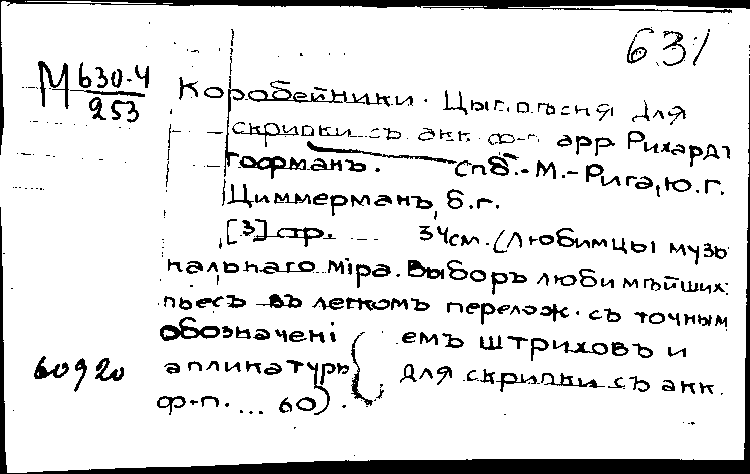 631
М 630-4
253
Коробейники. Цыг. пѣсня для
скрипки съ акк. ф-п. арр. Рихардъ
Гофманъ. Спб.-М.-Рига, Ю.Г.
Циммерманъ, б.г.
[3] стр. 34см. (Любимцы музы
кальнаго міра. Выборъ любимѣйших
пьесъ въ легкомъ перелож. съ точным
обозначені емъ штриховъ и
апликатуры для скрипки съ акк.
ф-п. ... 60).
60920